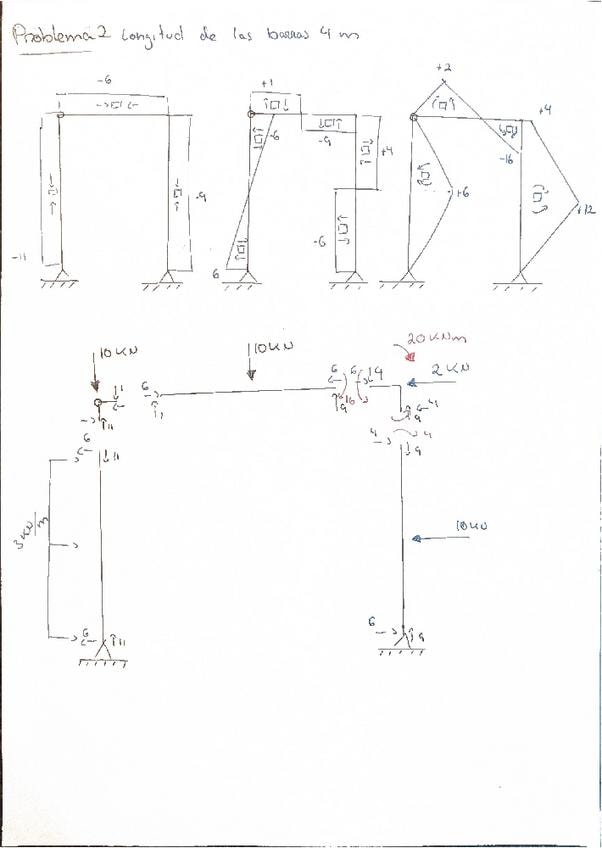 Problema 2 Longitud de las barras 4 m
-6
+1
+2
-6
-9
+4
+4
-16
-9
-11
-6
+6
+12
6
10 KN
10 KN
20 KNm
2 KN
6
1
6
1
6
9
16
6
9
11
4
9
6
11
4
4
9
3 KN/m
10 KN
6
11
6
9